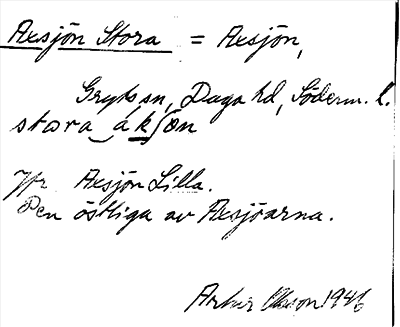 Axsjön Stora = Axsjön,
Gryts sn, Daga hd, Söderm. l.
stora aksjön
Jfr Axsjön Lilla.
Den östliga av Axsjöarna.
Artur Olsson 1946